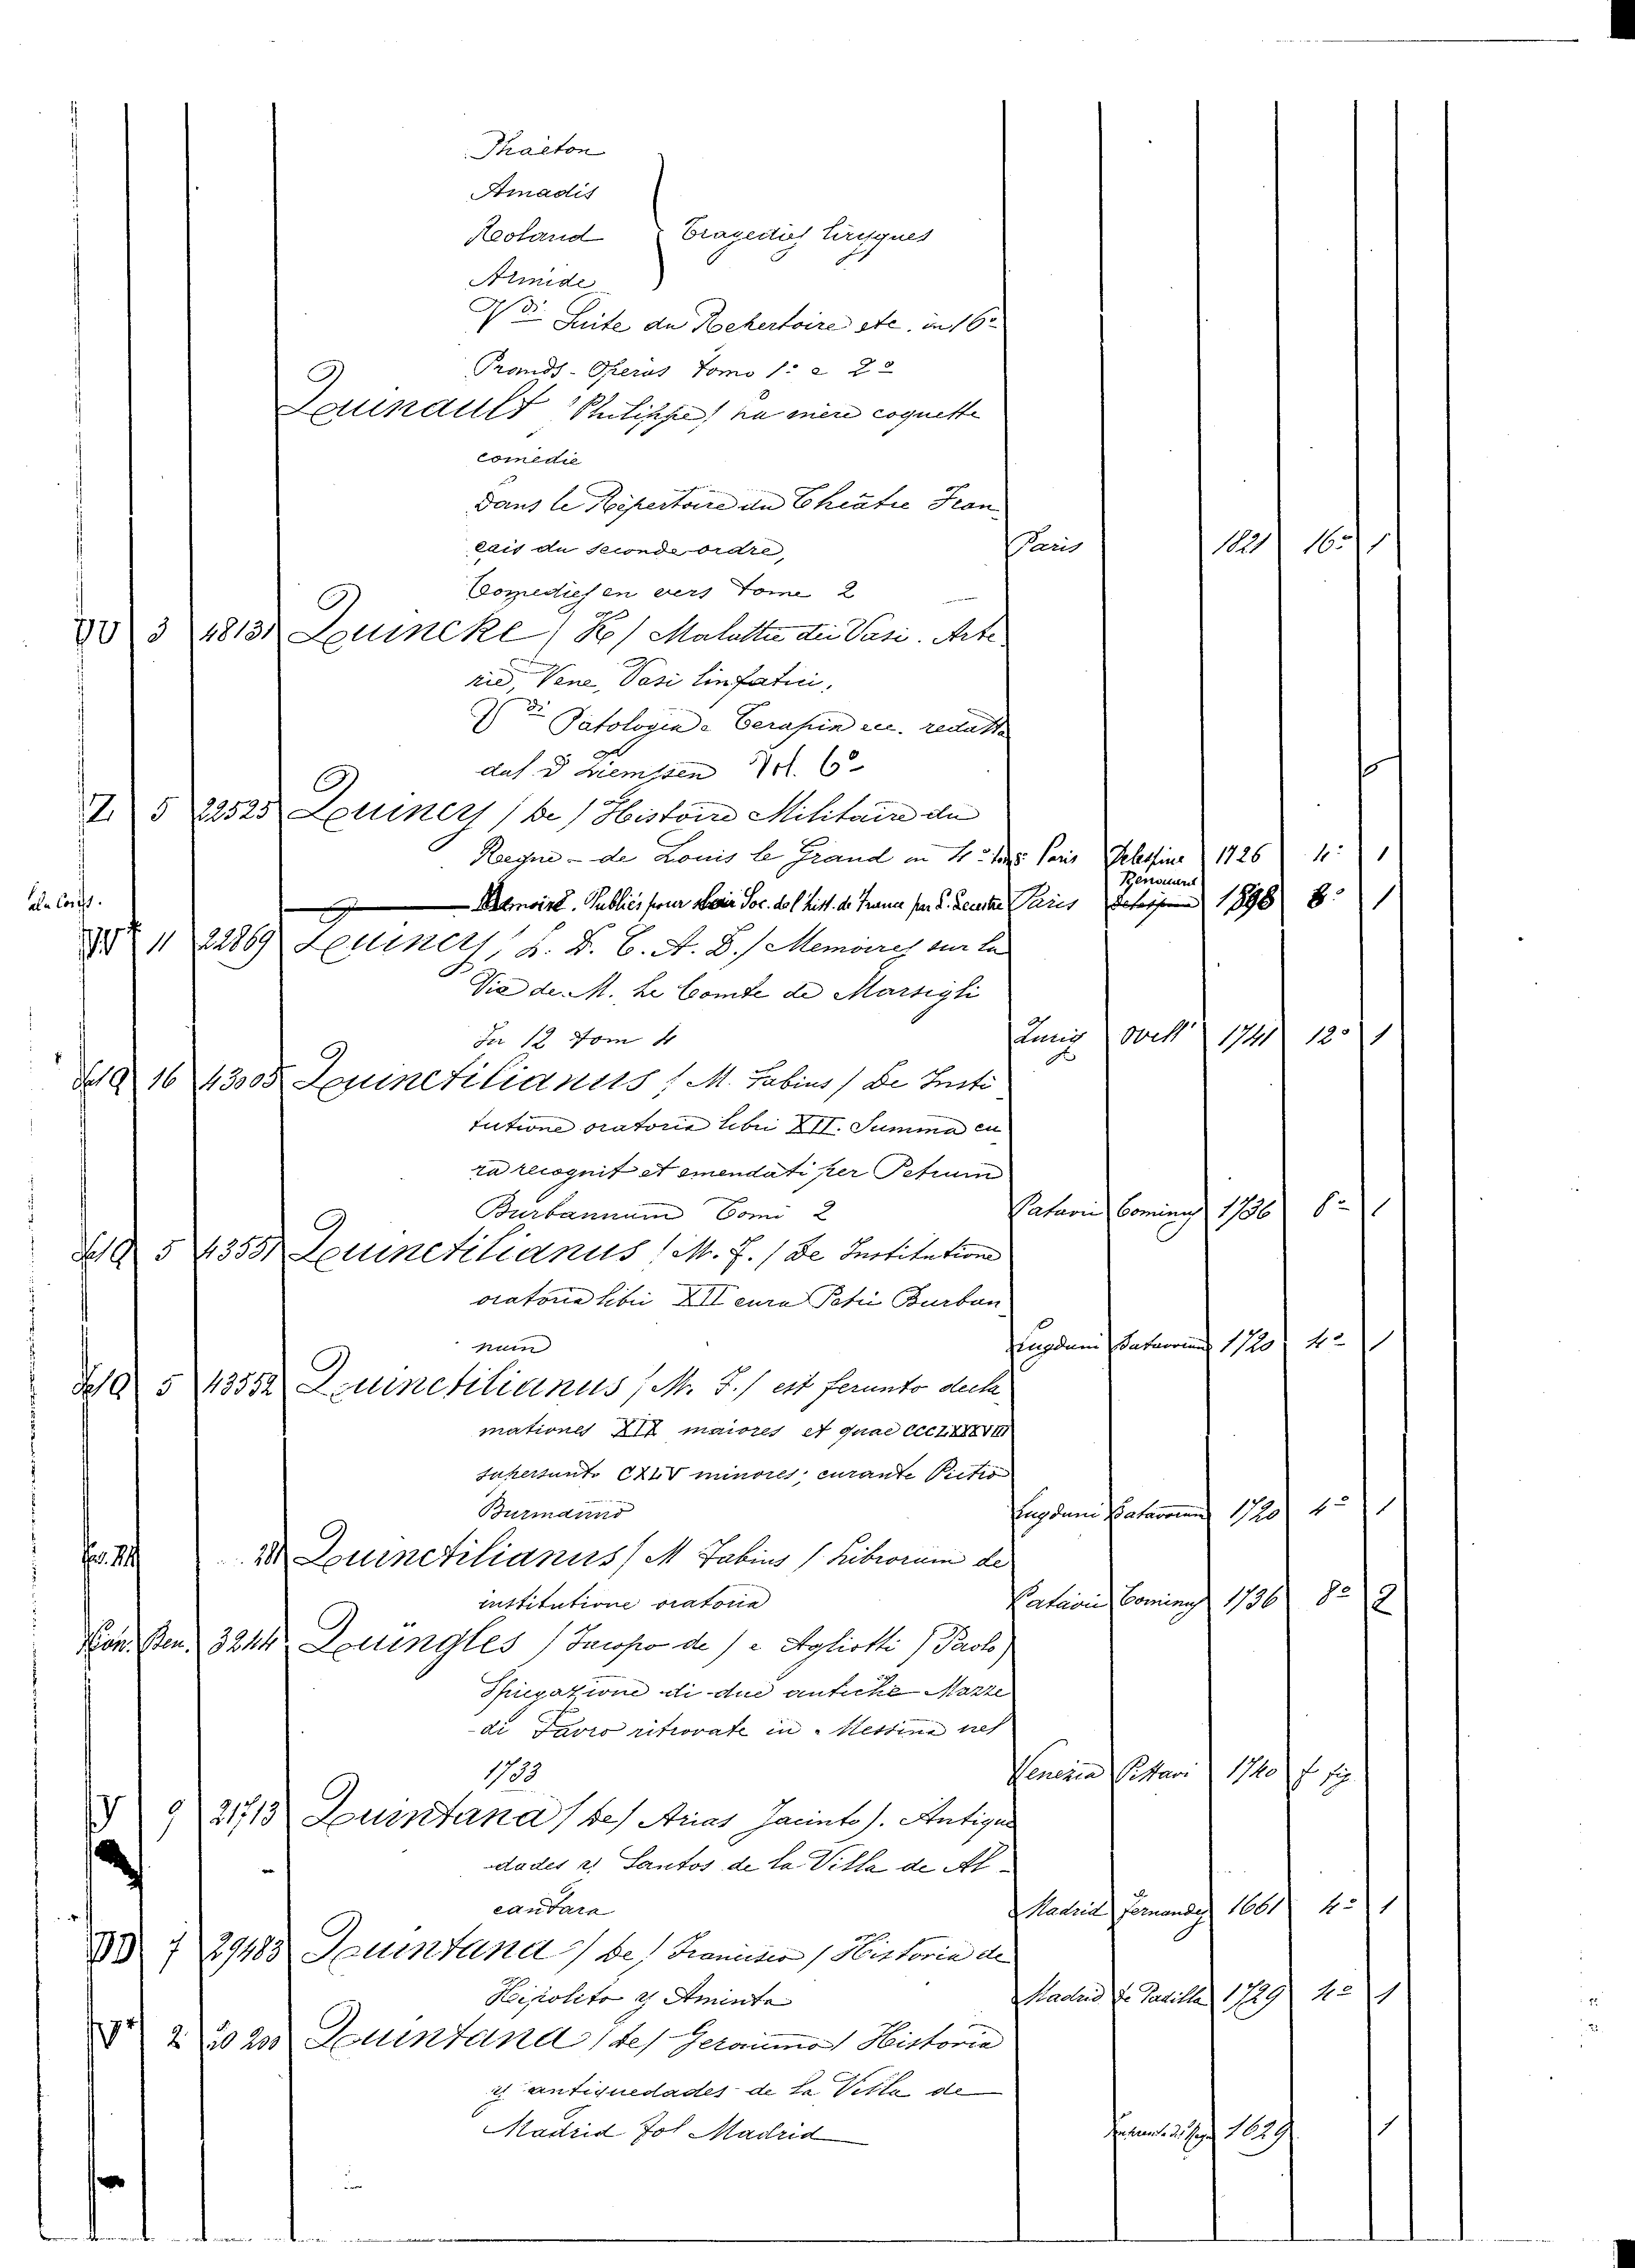 Phaéton
Amadis
Roland Tragedies liriques
Armide
Vdi Suite du Rechertoire etc. in 16°
Prands-Operas Tomo 1: e 2°
Quinault (Philippe) La mere coquette
comedie
Dans le Répertoire du Théatre Fran
cais du seconde ordre, Paris 1821 16° 1
Comedies en vers Tome 2
3 48131 Quincke (K) Malattie dei Vasi. Arte
rie, Vene, Vasi linfatici,
Vdi Patologia e Terapia ecc. redatta
dal D Ziemssen Vol. 6°
5 22525 Quincy (de) Histoire Militaire du
Regne - de Louis le Grand in 4° Paris 1726 4° 1
Memoire. Publiés pour la Soc. de l'hist. de France par L. Lecestre Paris Renouard 1898 8° 1
11 22869 Quincy, L. D. C. A. D.) Memoires sur la
Vie de M. Le Comte de Marsigli
In 12 Tom 4 Zurig Orell 1741 12° 1
16 43005 Quinctilianus (M. Fabius) De Insti
tutione oratoria libri XII. Summa cu
ra recognit et emendati per Petrum
Burbannum Tomi 2 Patavii Cominus 1736 8° 1
5 43551 Quinctilianus (M. F.) De Institutione
oratoria libri XII cura Petri Burban
num Lugduni Batavorum 1720 4° 1
5 43552 Quinctilianus (M. F.) est ferunto decla
mationes XIX maiores et quae CCCLXXXVIII
supersunto CXLV minores, curante Pietro
Burmanno Lugduni Batavorum 1720 4° 1
Quinctilianus (M Fabius) Librorum de
institutione oratoria Patavii Cominus 1736 8° 2
Ben. 3244 Quingles (Jacopo de) e Agliotti (Paolo)
Spiegazione di due antiche Mazze
di Favro ritrovate in Messina nel
1733 Venezia Pittari 1740 f fig.
9 21713 Quintana (de) Arias Jacinto). Antigue
dades y Santos de la Villa de Al-
cantara Madrid Fernandez 1661 4° 1
7 29483 Quintana (de) Francisco) Historia de
Hipolito y Aminta Madrid de Padilla 1729 4° 1
2 20 200 Quintana (de) Geronimo) Historia
y antiguedades de la Villa de
Madrid fol Madrid 1629 1